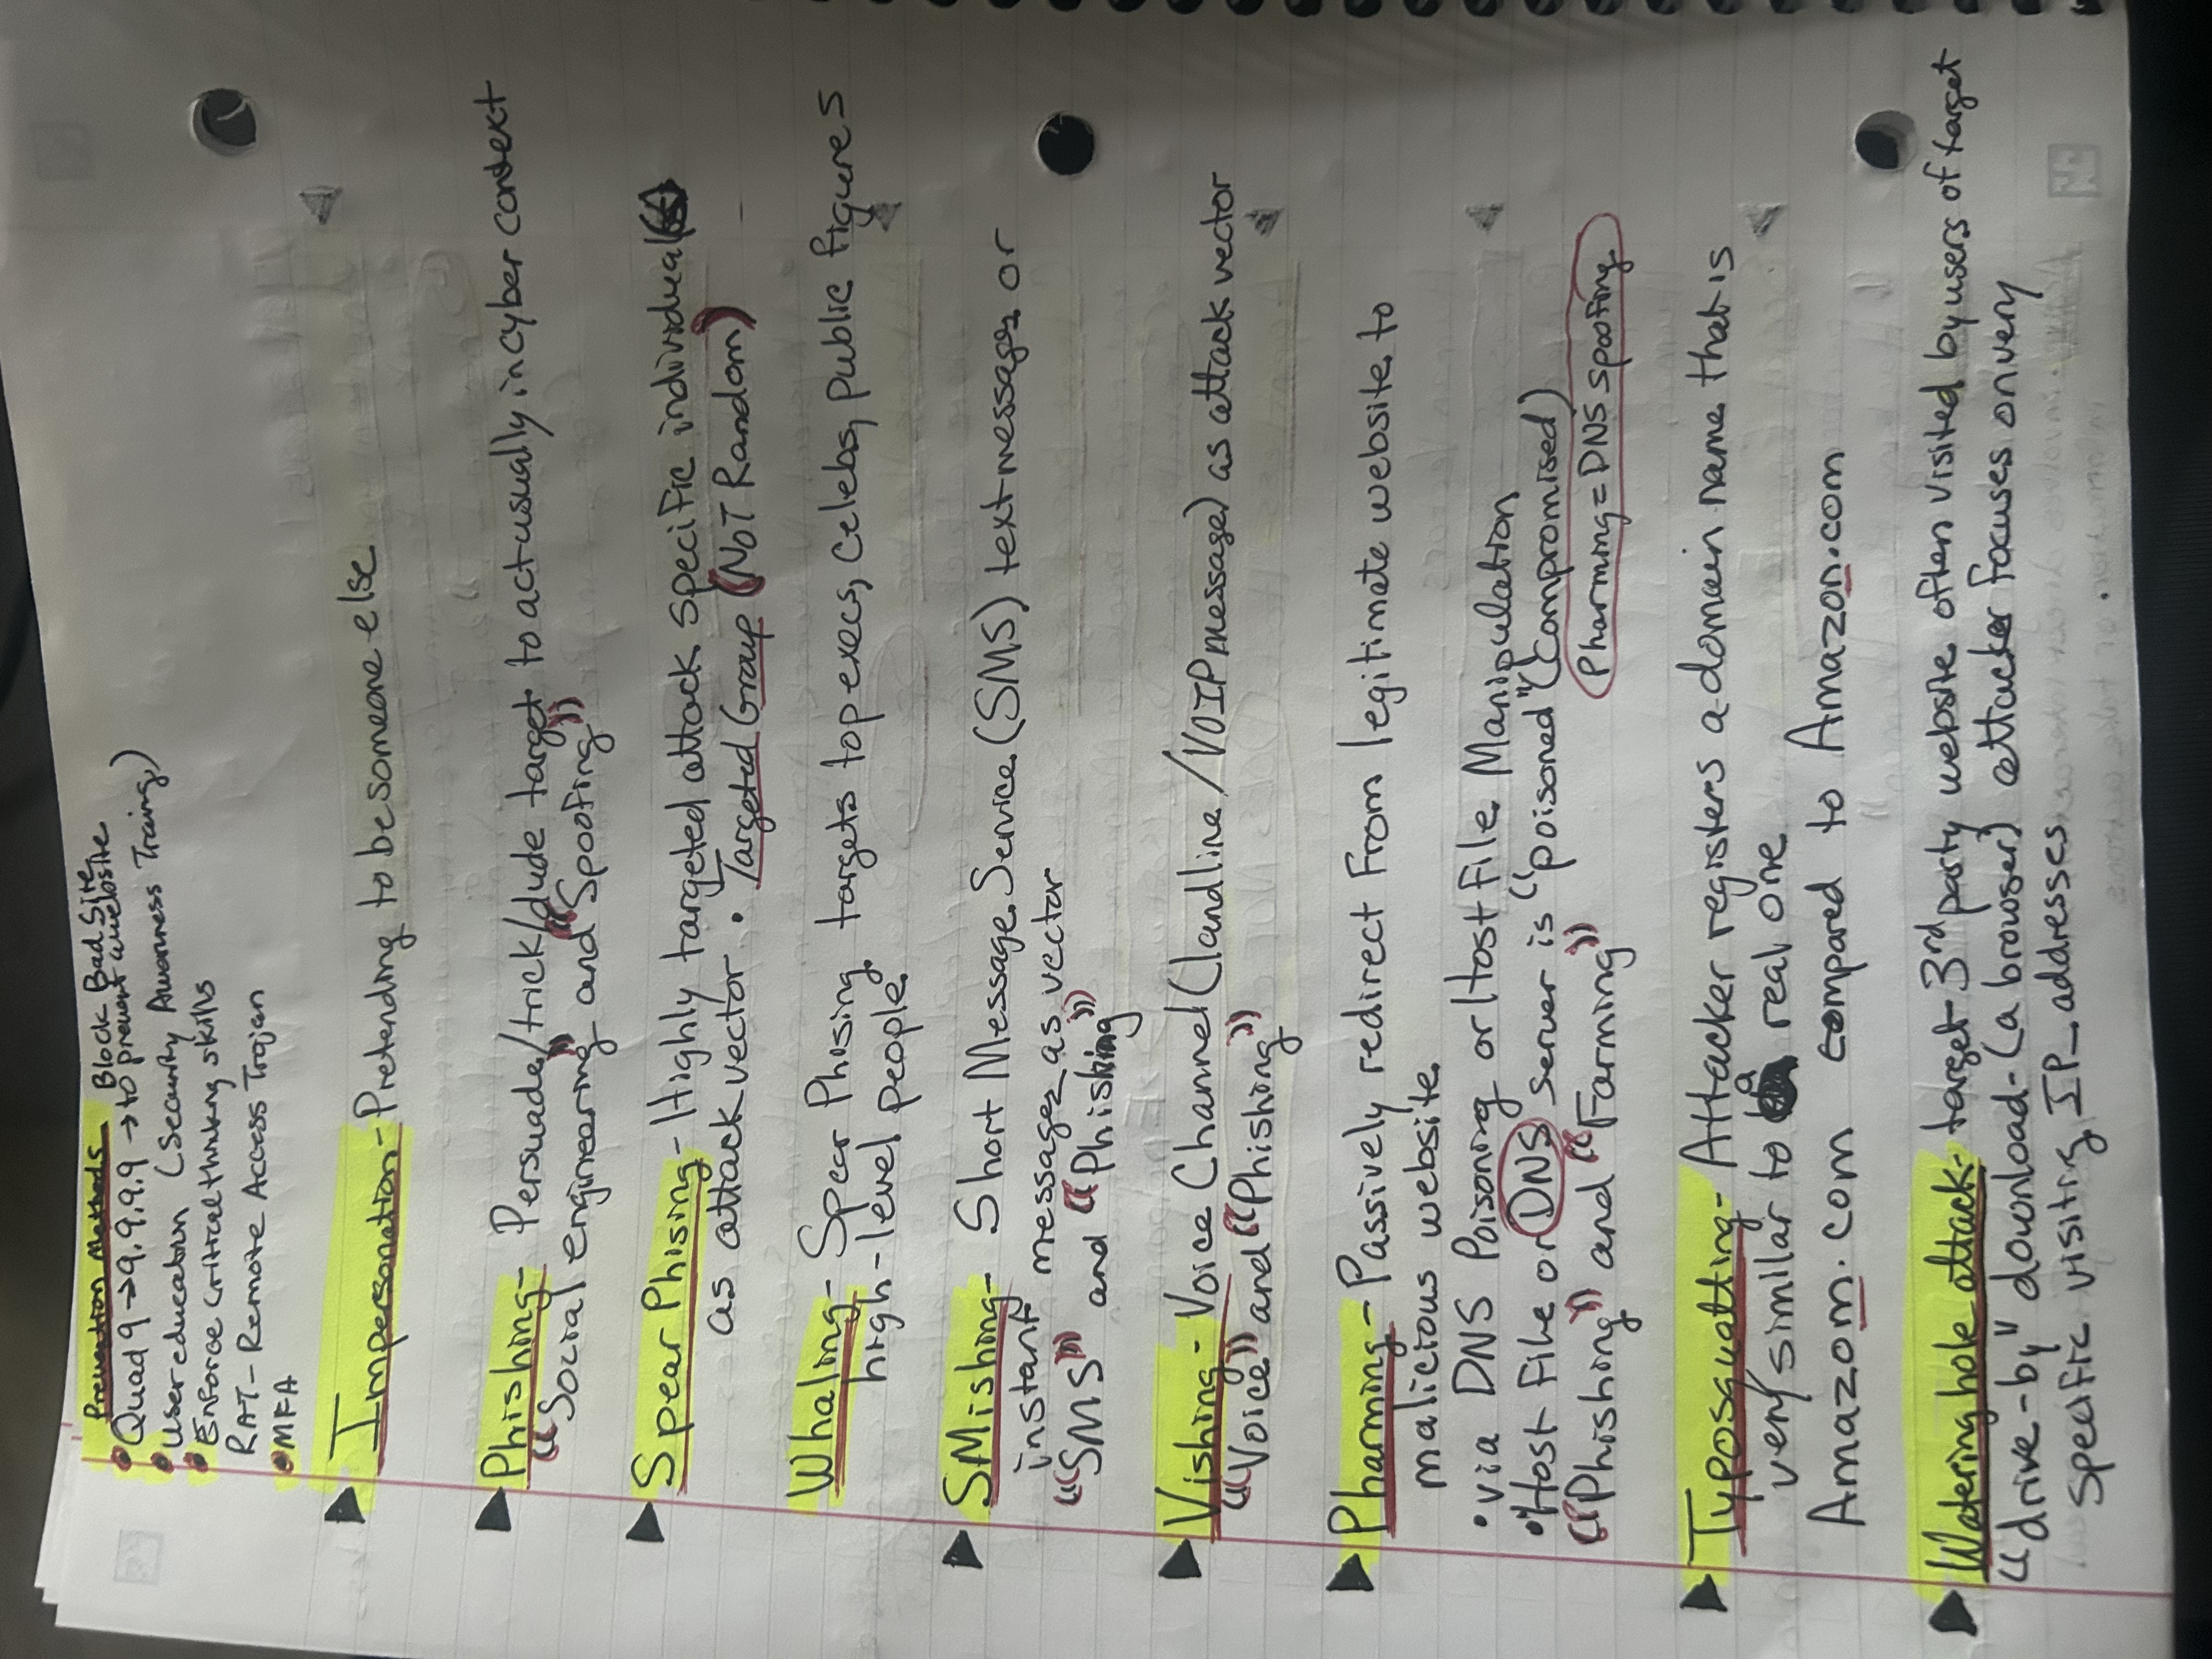 Prevention Methods Block Bad Site
• Quad 9 → 9.9.9.9 → to prevent website
• User education (Security Awarness Traing)
• Enforce critical thinking skills
RAT - Remote Access Trojan
• MFA
Impersonation - Pretending to be someone else
Phishing - Persuade/trick/dude target to act usually in cyber context
"Social engineering" and "Spoofing"
Spear Phising - Highly targeted attack specific individual
as attack vector • Targeted Group (NOT Random)
Whaling - Spear Phising targets top execs, celebs, public figures
high-level people
SMishing - Short Message Service (SMS) text messages or
instant messages as vector
"SMS" and "Phishing"
Vishing - Voice Channel (landline/VOIP message) as attack vector
"Voice" and "Phishing"
Pharming - Passively redirect From legitimate website to
malicious website
• via DNS Poisoning or Host File Manipulation
• Host File or DNS server is "poisoned" (compromised)
"Phishing" and "Farming" Pharming = DNS spoofing
Typosquatting - Attacker registers a domain name that is
very similar to a real one
Amazom.com compared to Amazon.com
Watering hole attack - target 3rd party website often visited by users of target
"drive-by" download - (a browser) attacker focuses on very
specific visiting IP addresses